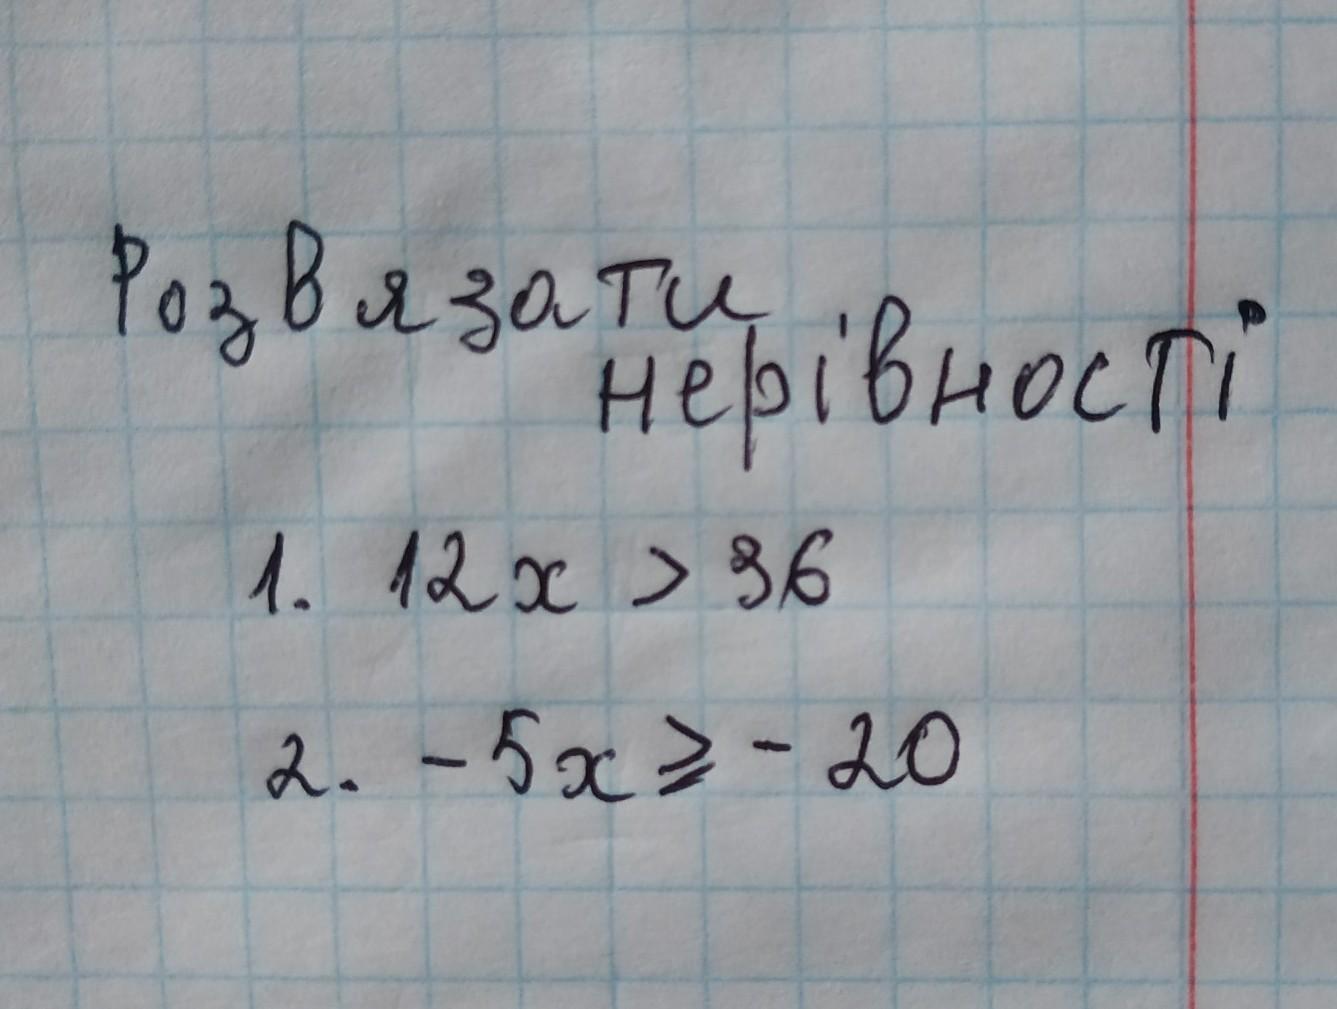 Розвязати
нерівності
1. 12x > 36
2. -5x ⩾ - 20